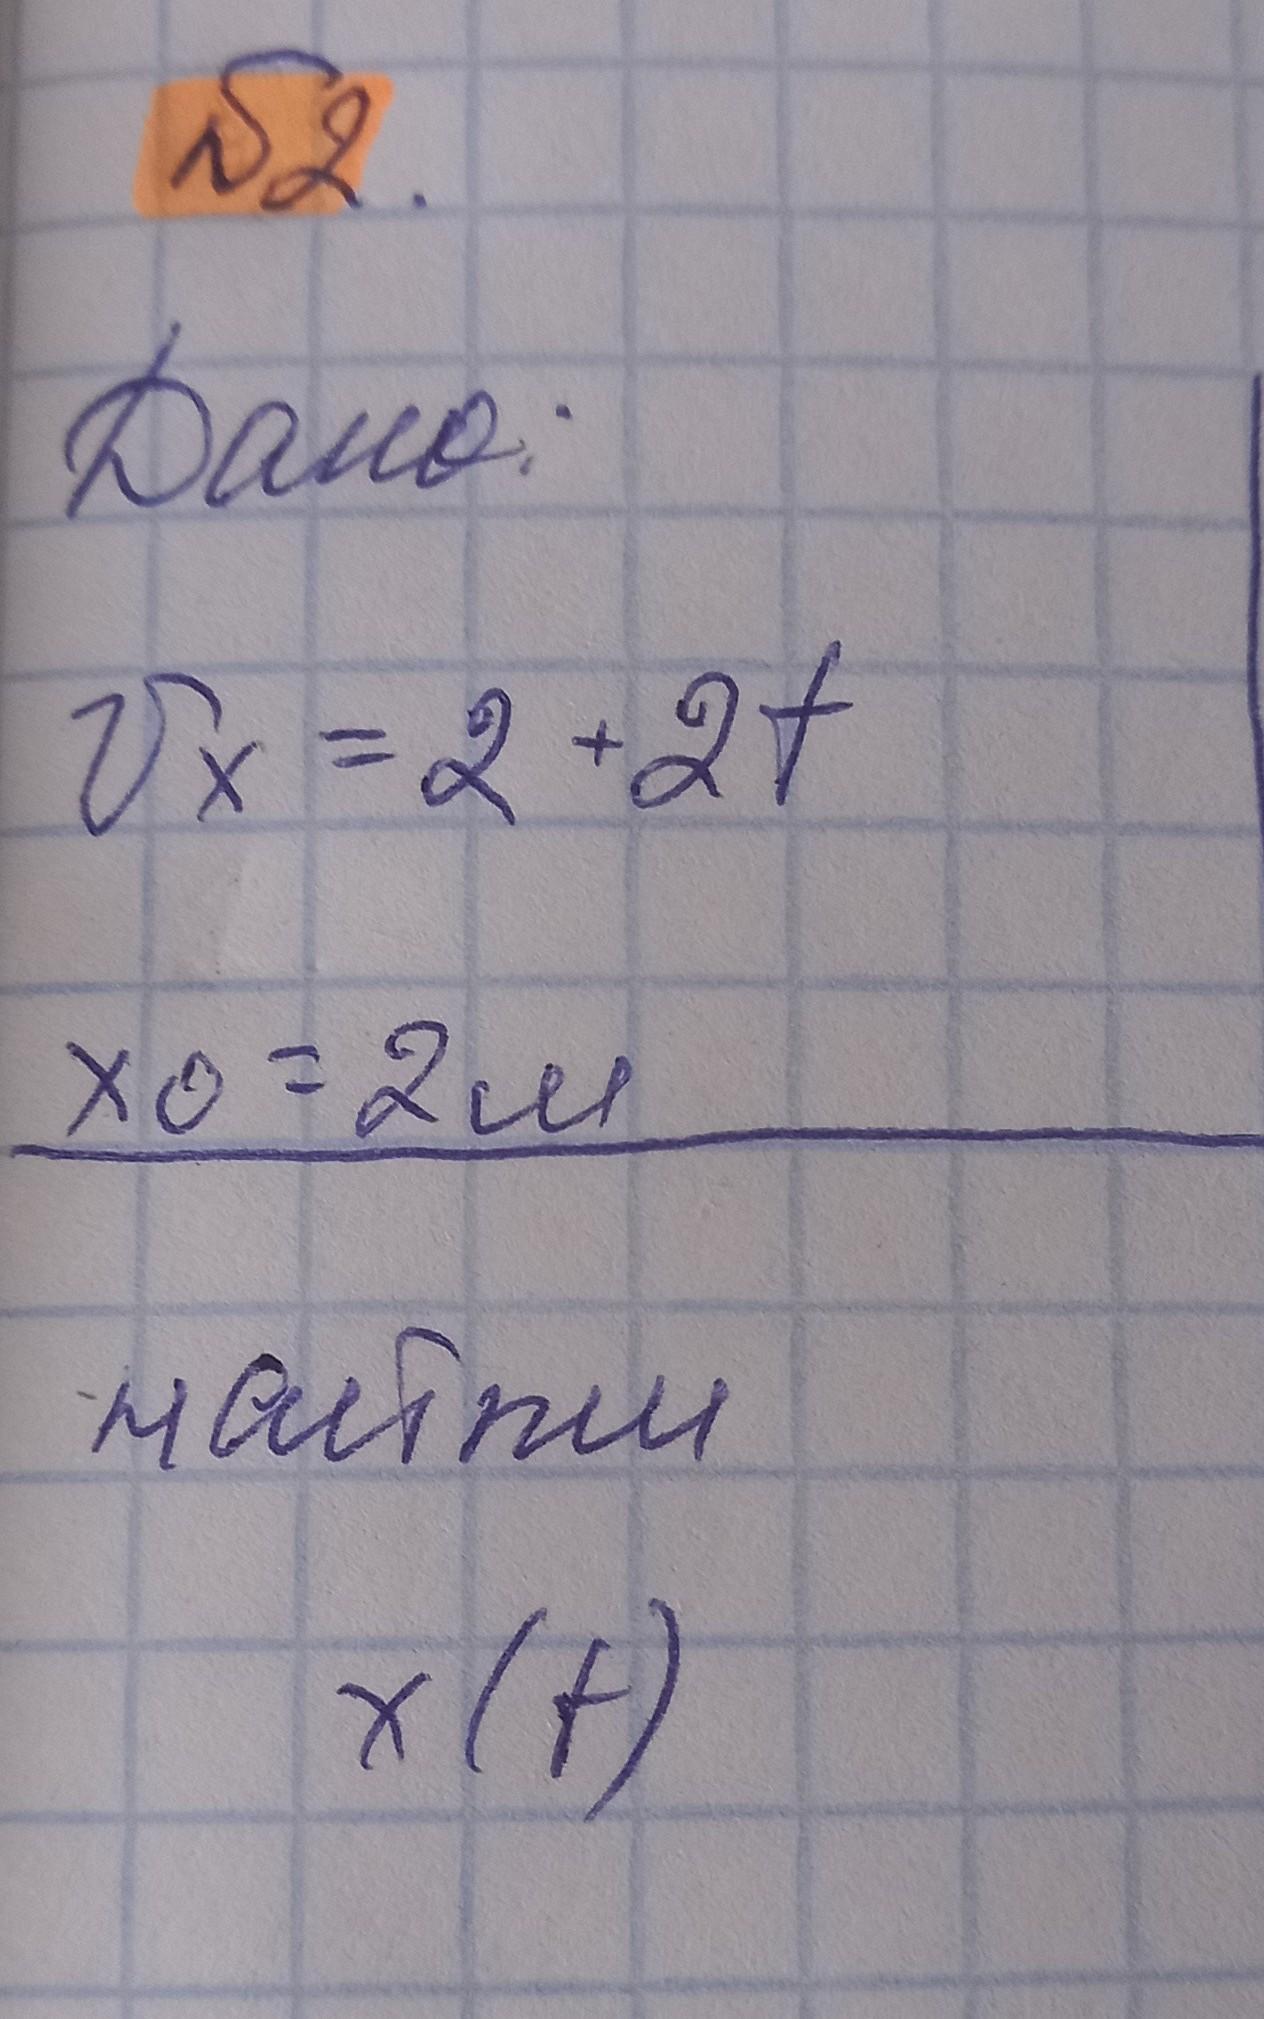 №2.
Дано:
Vx = 2 + 2t
x0 = 2м
найти
x(t)